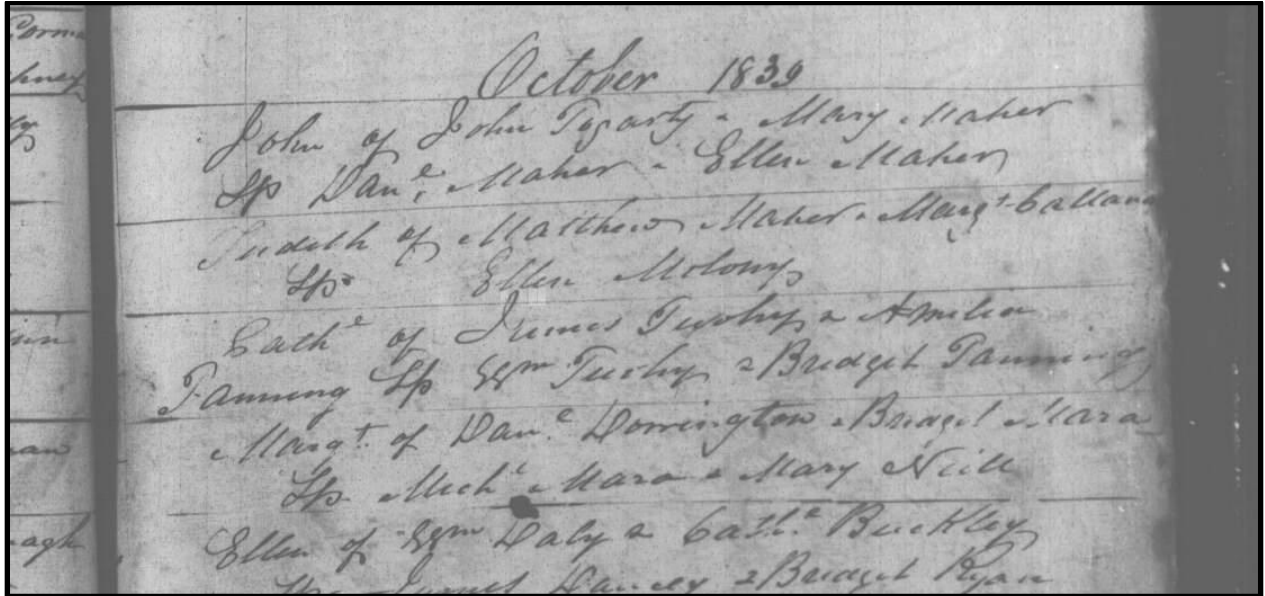 October 1839
John of John Fogarty & Mary Maher
Sp Danl. Maher & Ellen Maher
Judith of Matthew Maher & Margt. Callana
Sps Ellen Molony
Cathe of James Tuohy & Amelia
Fanning Sp Wm Tuohy & Bridget Fanning
Margt. of Danl. Dorrington & Bridget Mara
Sp. Michl Mara & Mary Neill
Ellen of Wm Daly & Cathe Buckley
James & Bridget Ryan